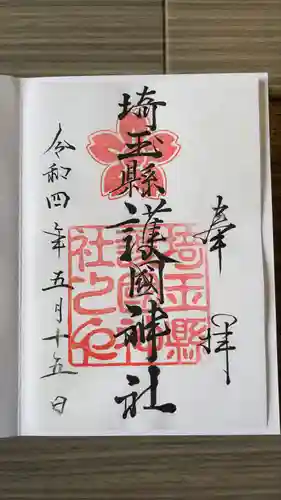 奉拝
埼玉縣護國神社
埼玉縣護國神社之印
令和四年五月十五日